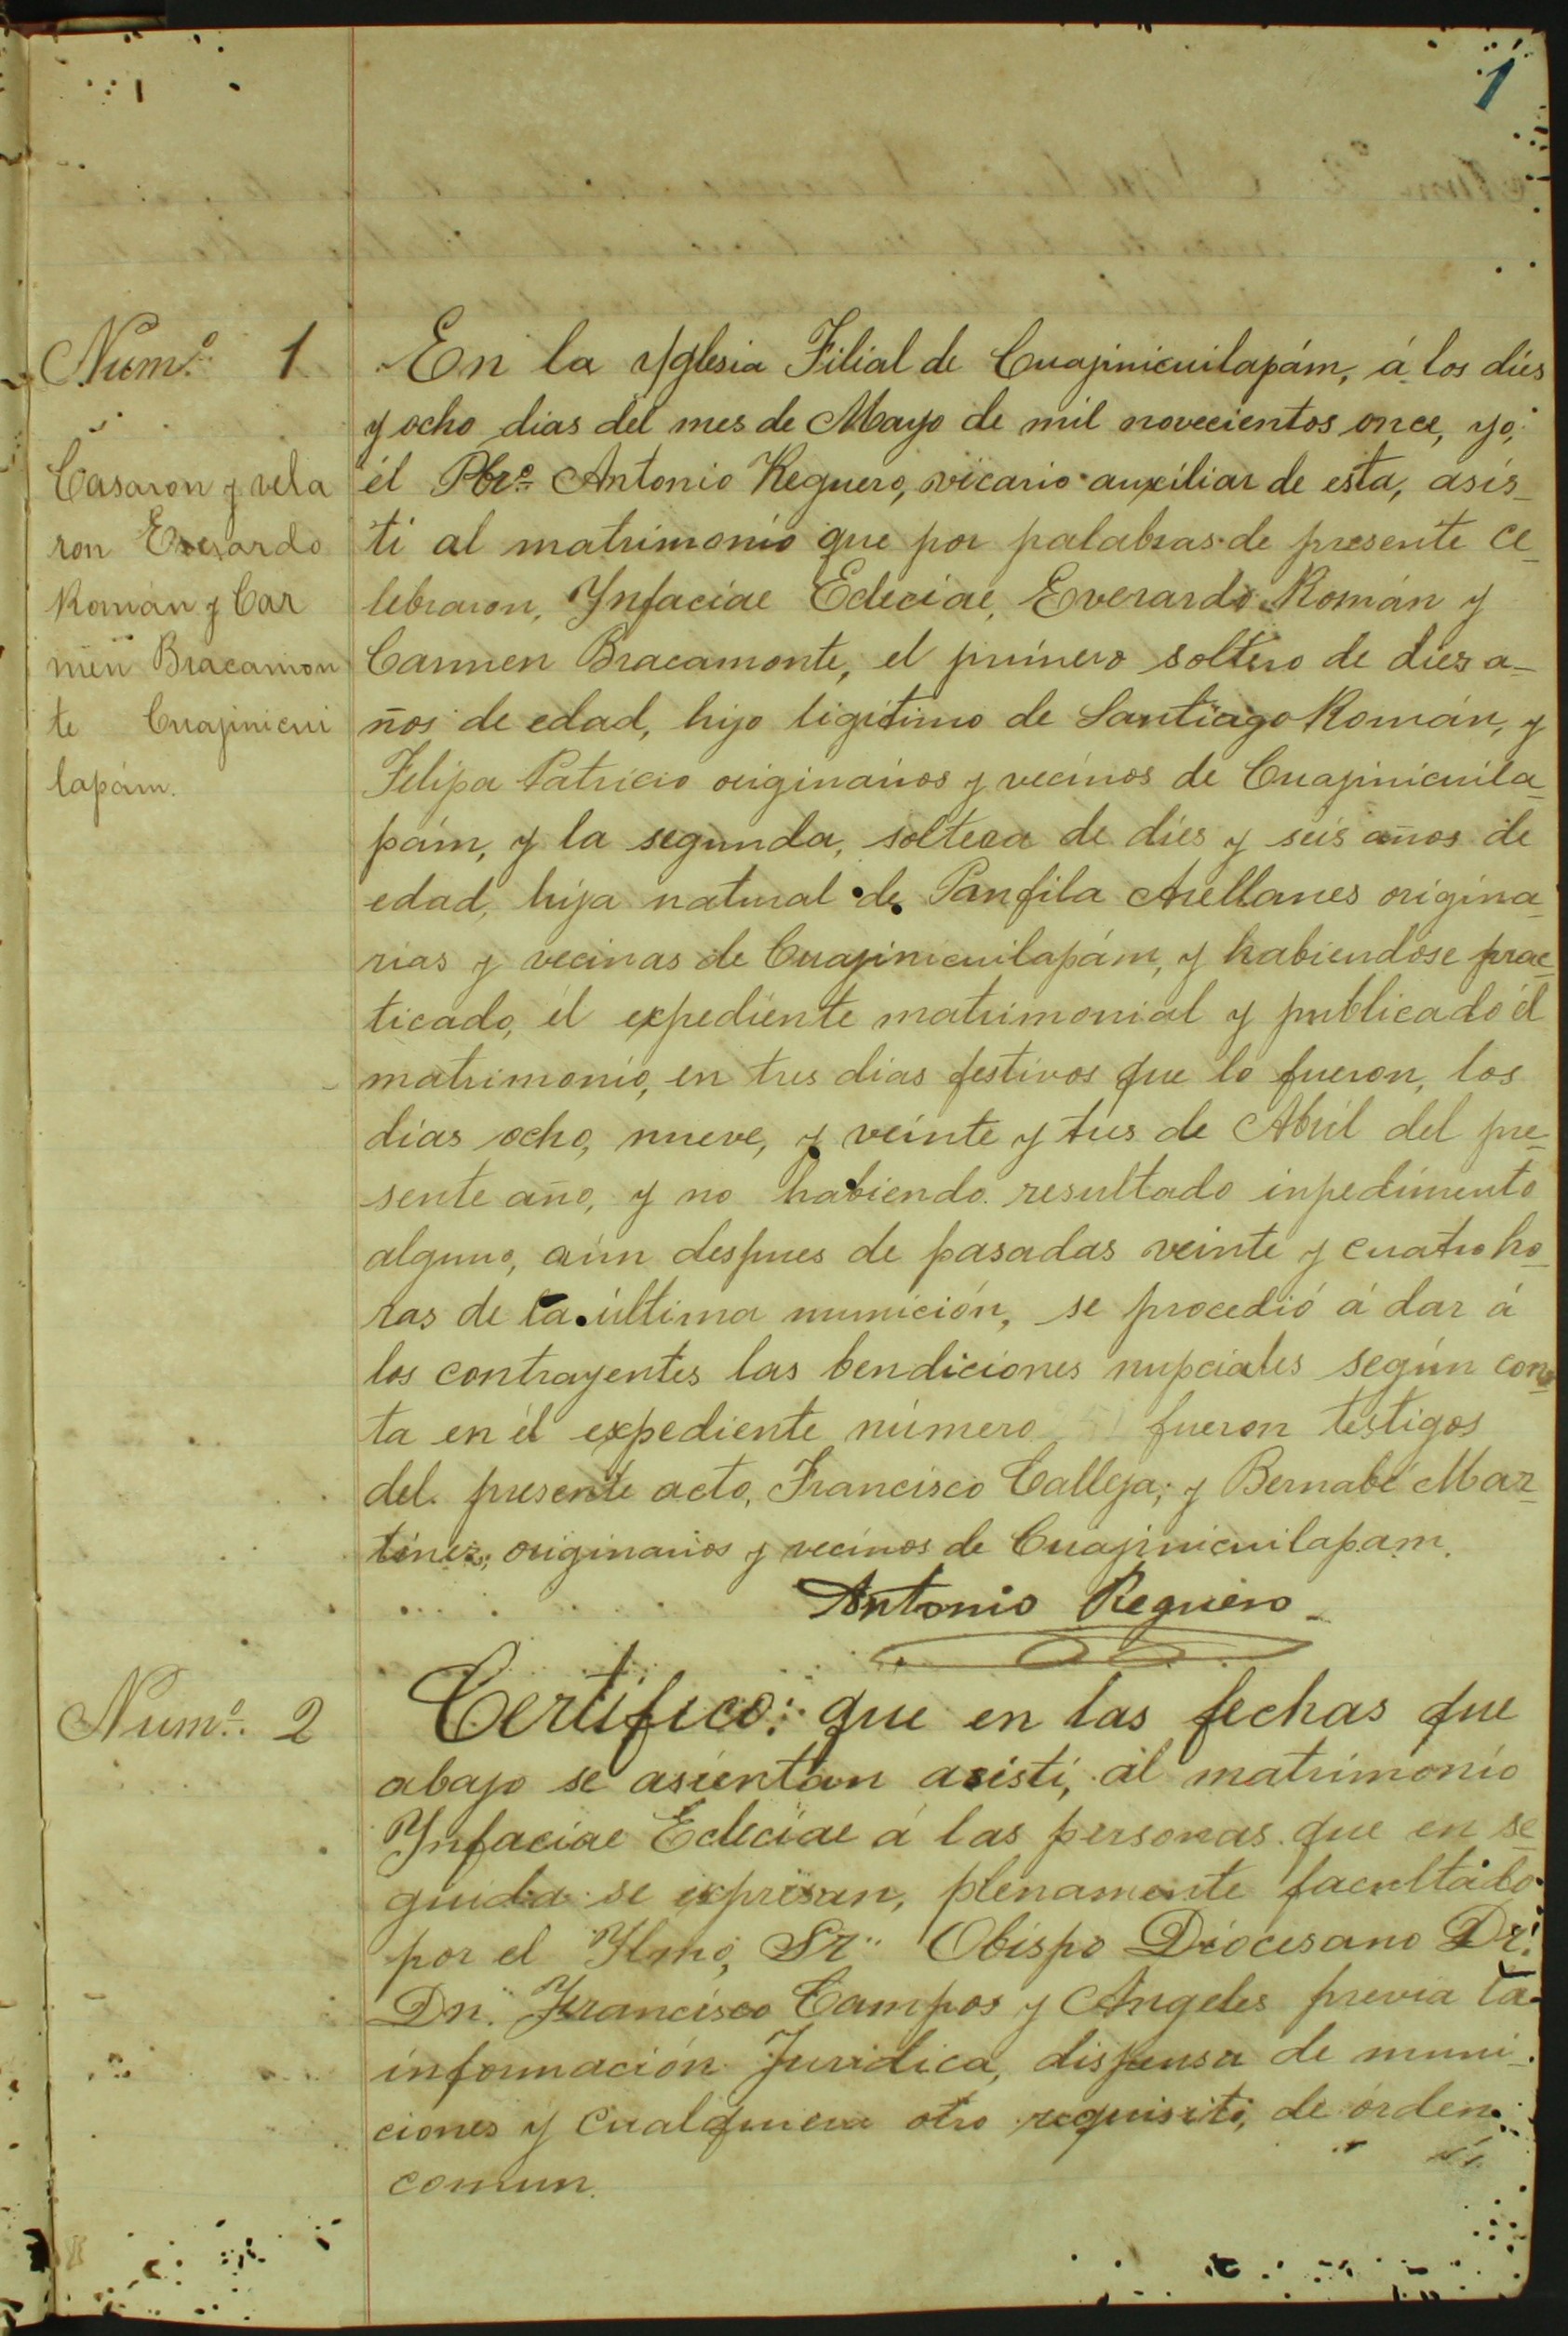 1
Num.º 1
Casaron y vela
ron Everardo
Román y Car
men Bracamon
te Cuajinicui
lapám.
En la Yglesia Filial de Cuajinicuilapám, á los dies
y ocho dias del mes de Mayo de mil novecientos once, yo,
él Pbrº Antonio Reguero, vicario auxiliar de esta, asis_
ti al matrimonio que por palabras de presente ce_
lebraron, Ynfaciae Ecleciae, Everardo Román y
Carmen Bracamonte, el primero soltero de diez a_
ños de edad, hijo ligitimo de Santiago Román, y
Felipa Patricio originarios y vecinos de Cuajinicuila_
pám, y la segunda, soltera de dies y seis años de
edad, hija natural de Panfila Arellanes origina_
rias y vecinas de Cuajinicuilapám, y habiendose prac_
ticado, él expediente matrimonial y publicado él
matrimonio, en tres dias festivos que lo fueron, los
dias ocho, nueve, y veinte y tres de Abril del pre_
sente año, y no habiendo resultado inpedimento
alguno, aún despues de pasadas veinte y cuatro ho_
ras de la última munición, se procedió á dar á
los contrayentes las bendiciones nupciales según cons_
ta en él expediente número fueron testigos
del presente acto, Francisco Calleja; y Bernabé Mar_
tinez; originarios y vecinos de Cuajinicuilapam.
Antonio Reguero
Num.º 2
Certifico: que en las fechas que
abajo se asientan asisti, al matrimonio
Ynfaciae Ecleciae á las personas que en se_
guida se expresan, plenamente facultado
por el Ylmo, Sr. Obispo Diocesano Dr.
Dn. Francisco Campos y Angeles previa la
información Juridica, dispensa de muni_
ciones y cualquiera otro requisito, de órden
comun.